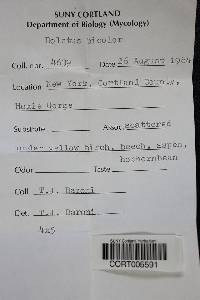 SUNY CORTLAND
Department of Biology (Mycology)
Boletus bicolor
Coll. nor. 4639 Date 26 August 1984
Location New York, Cortland County,
Hoxie Gorge
Substrate Assoc. scattered
under yellow birch, beech, aspen,
hophornbean
Odor Taste
Coll. T.J. Baroni
Det. T.J. Baroni
425
SUNY Cortland Herbarium
CORT006591